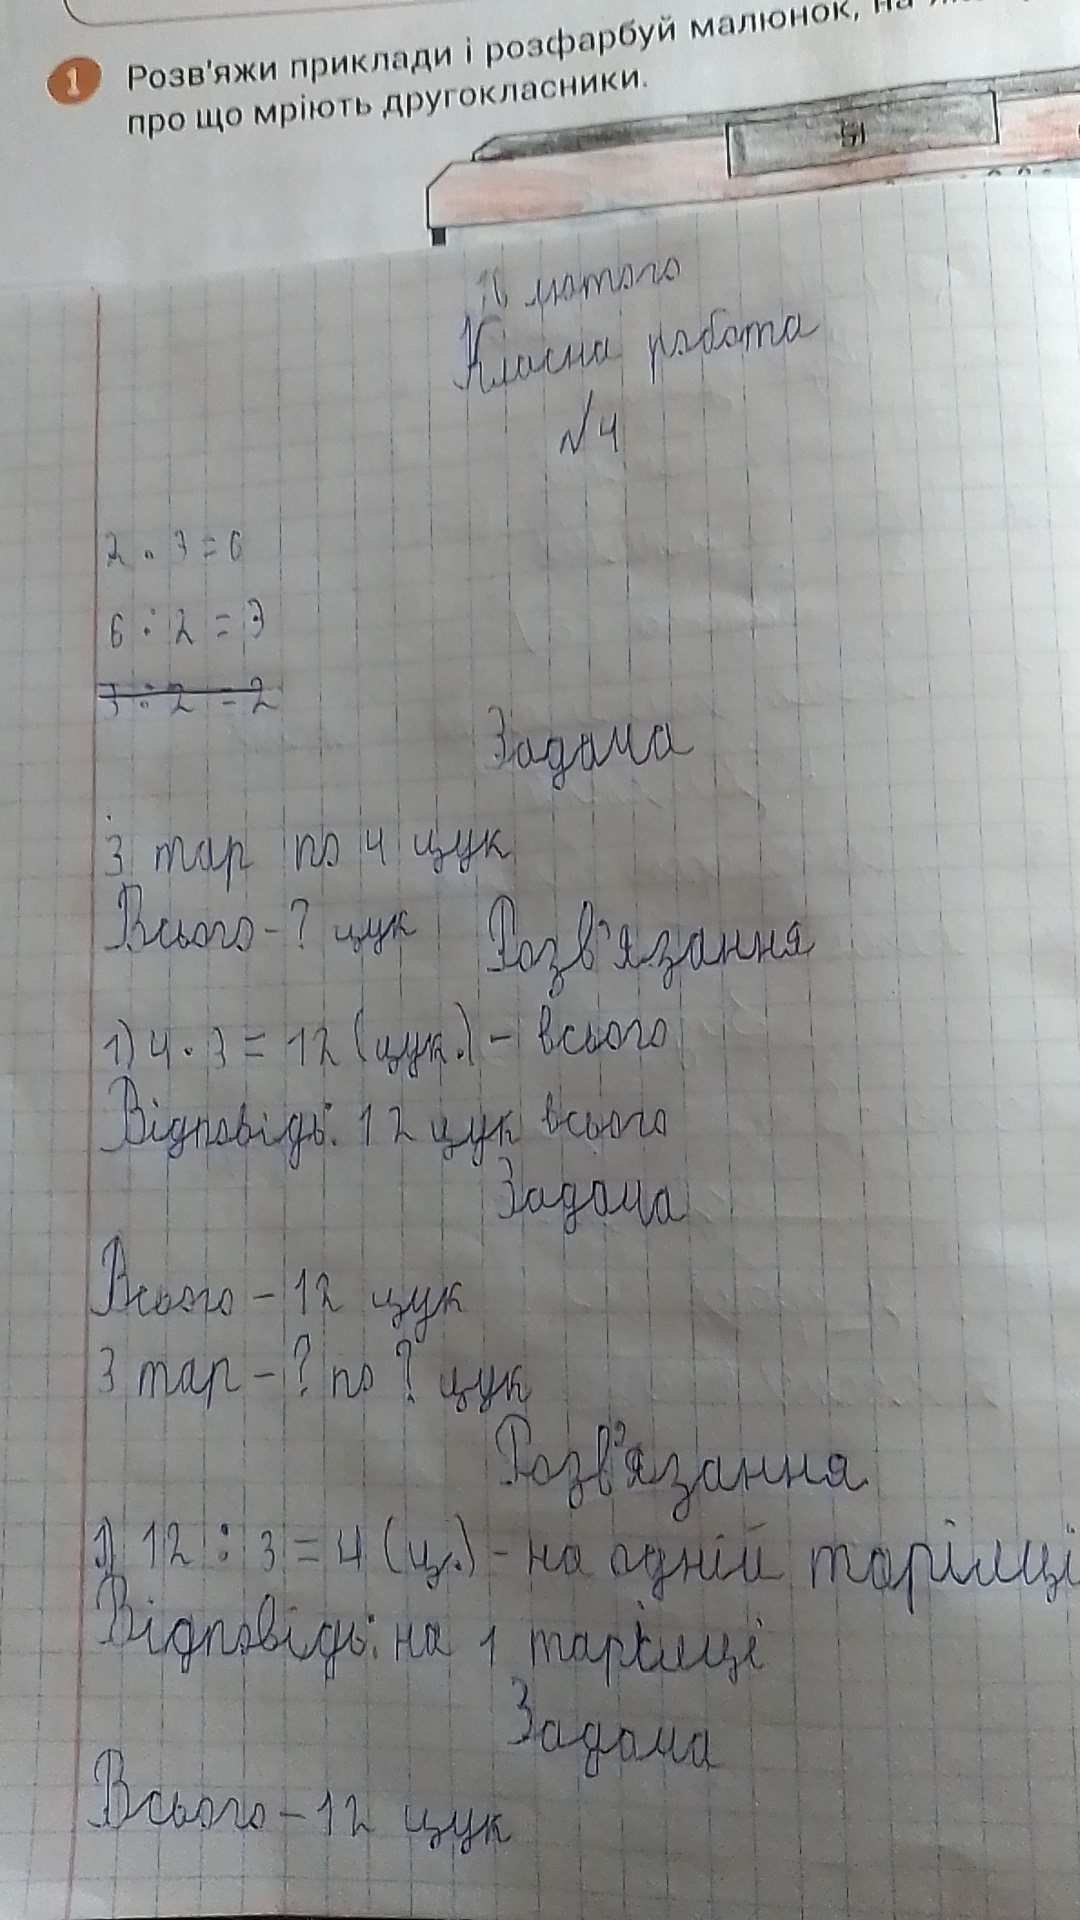 1 Розв'яжи приклади і розфарбуй малюнок, на
про що мріють другокласники.
лютого
Класна робота
№4
2 · 3 = 6
6 : 2 = 3
3 : 2 = 2
Задача
3 тар по 4 цук
Всього - ? цук Розв'язання
1) 4 · 3 = 12 (цук.) - всього
Відповідь: 12 цук всього
Задача
Всього - 12 цук
3 тар - ? по ? цук
Розв'язання
1) 12 : 3 = 4 (ц.) - на одній тарілці
Відповідь: на 1 тарілці
Задача
Всього - 12 цук